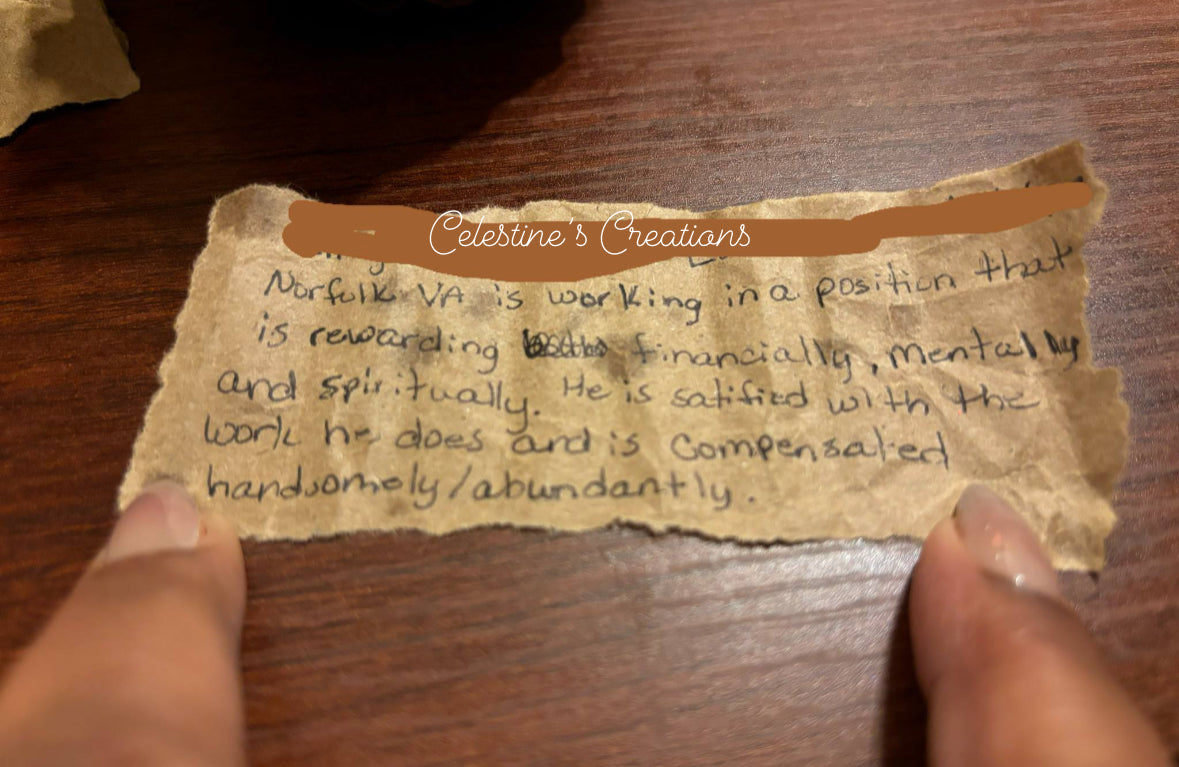 Celestine's Creations
Norfolk VA is working in a position that
is rewarding financially, mentally
and spiritually. He is satified with the
work he does and is compensated
handsomely/abundantly.